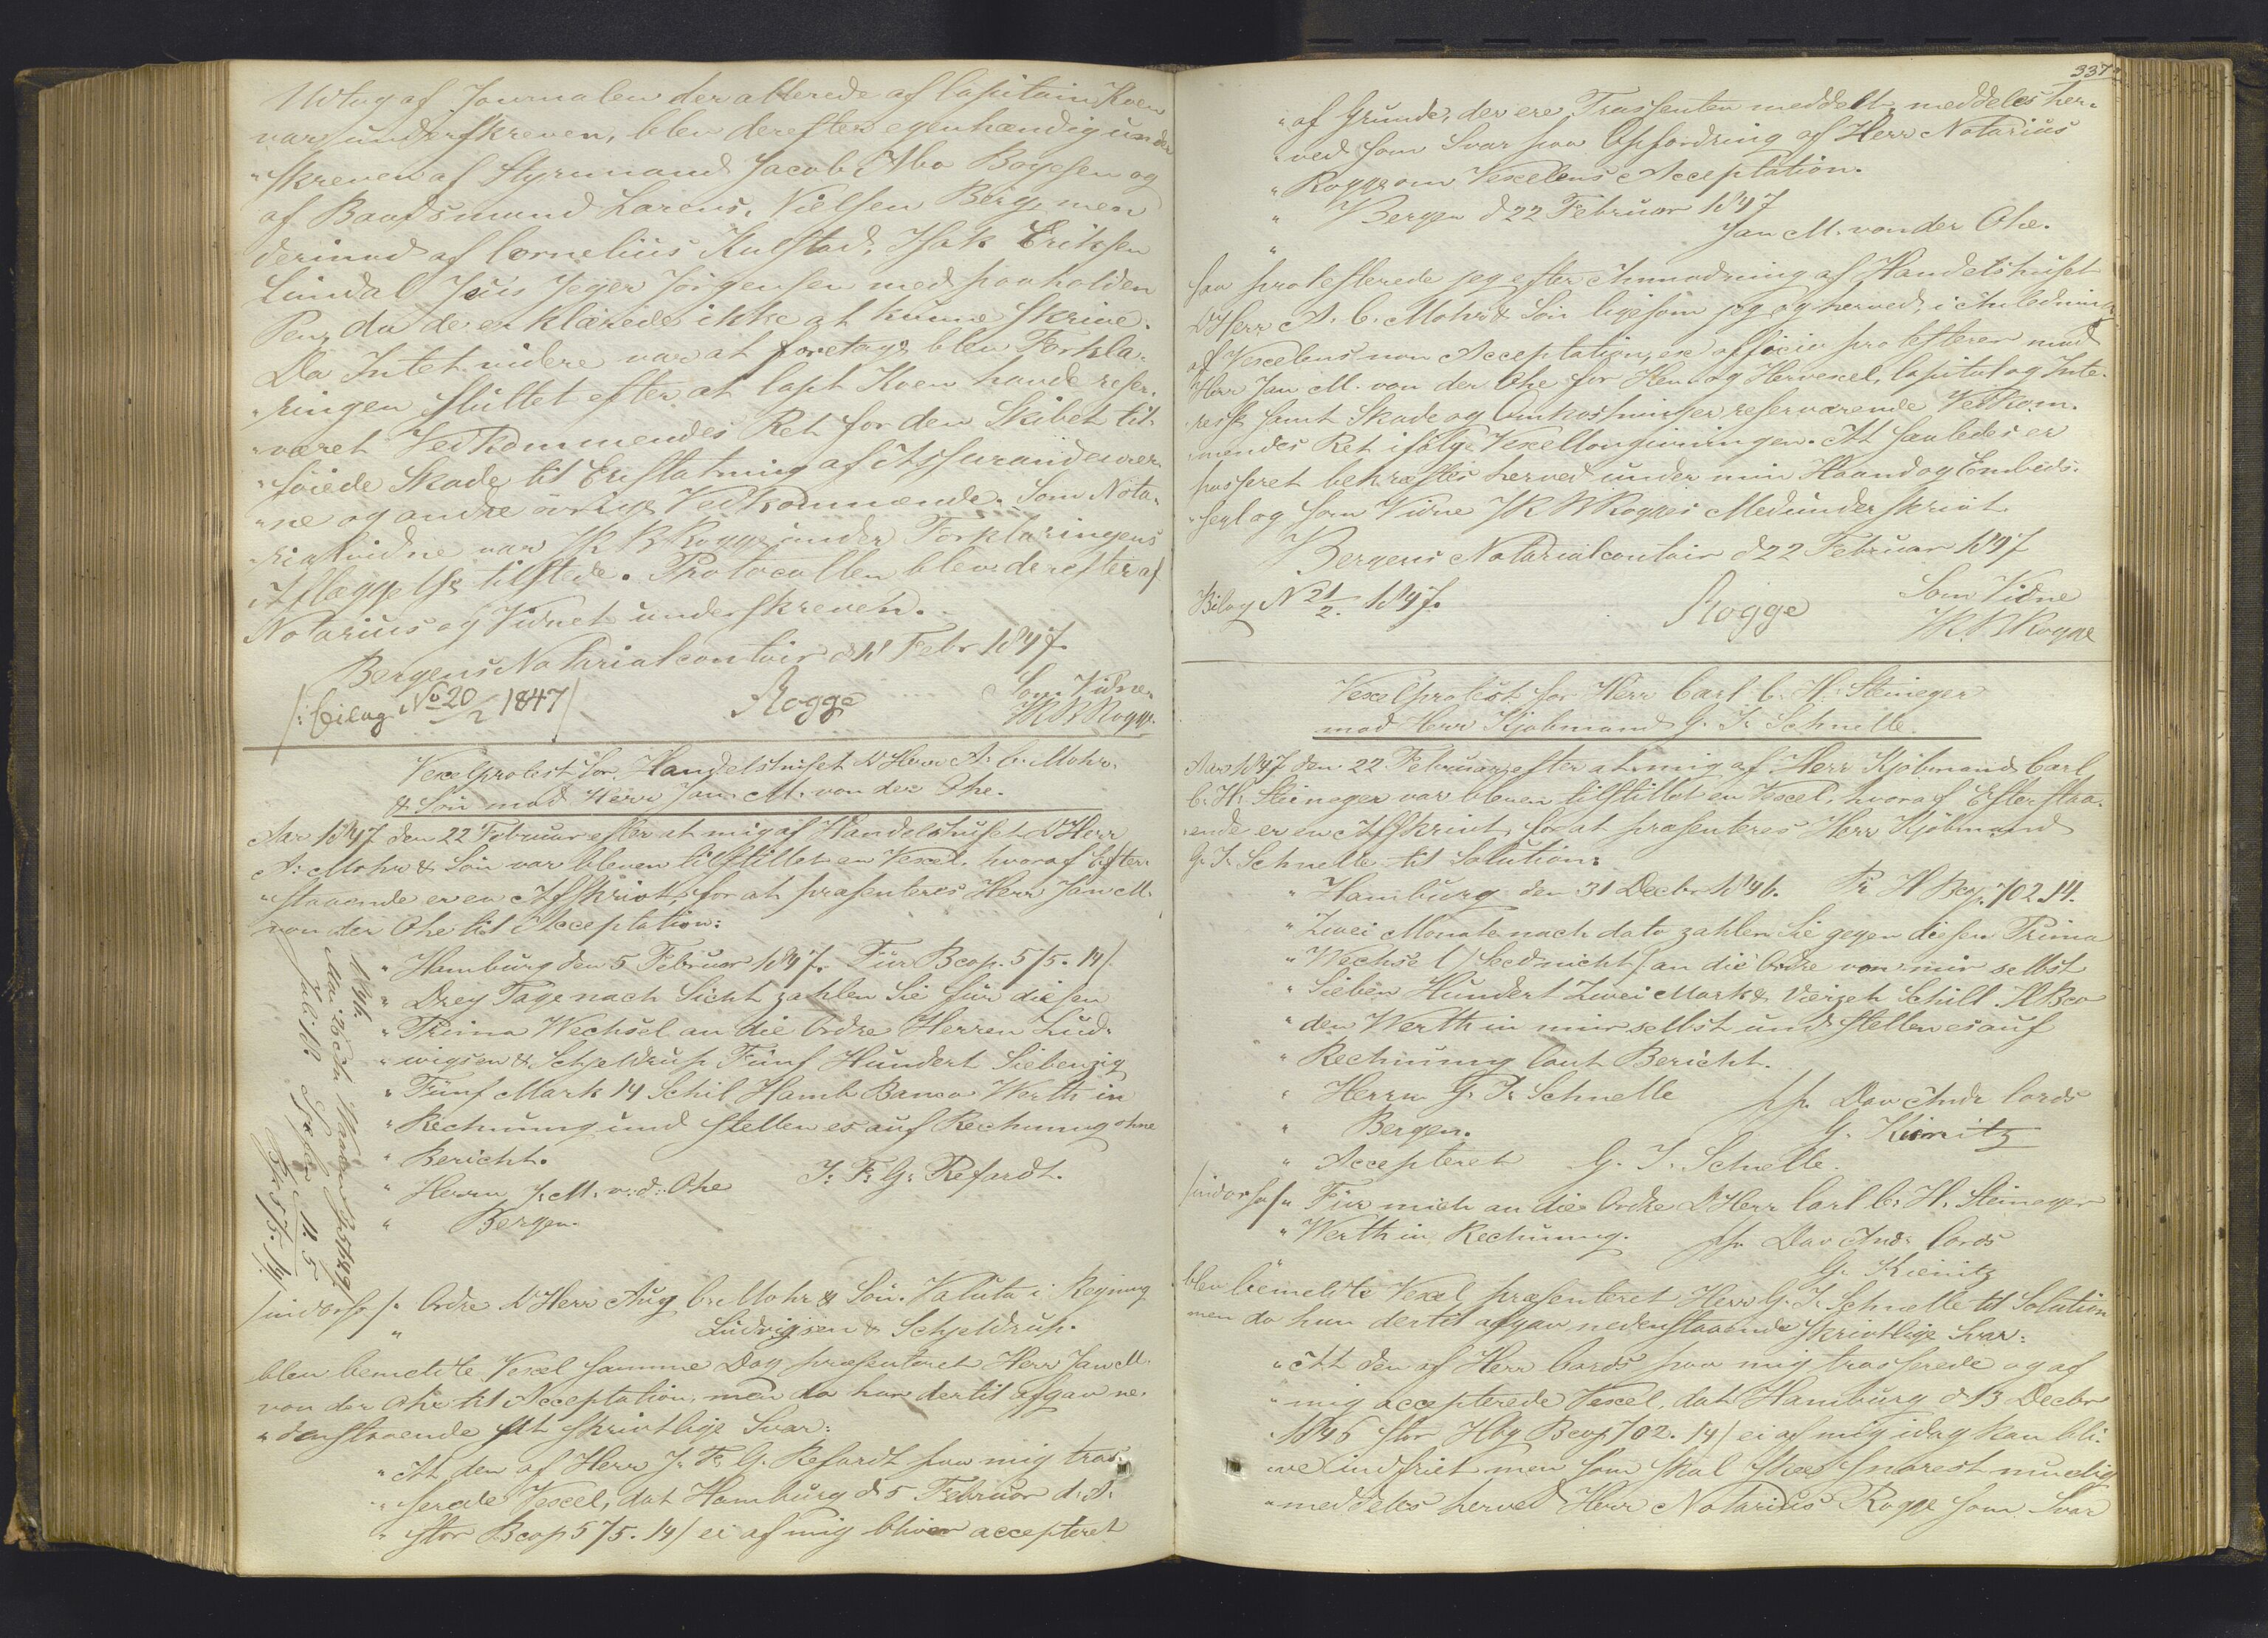 Udtog af Journalen der allerede af Capitain Koen
var underskreven, blev derefter egenhændig under
"skreven af Styrmand Jacob Abo Boyesen og
af Baadsmand Larens. Nielsen Berg, men
derimod af Cornelius Kulstad, Isak Eriksen
Lundal Jens Jeger Jörgensen med paaholden
Pen, da de erklærede ikke at kunne skrive.
Da Intet videre var at foretage blev Forkla-
"ringen sluttet efter at Capt Koen havde reser-
"veret Vedkommendes Ret for den Skibet til-
"föiede Skade til Erstatning af Assurandeurer-
"ne og andre övrige Vedkommende. Som Nota-
"rialvidne var JR B Rogge under Forklaringens
Aflæggelse tilstede. Protocollen blev derefter af
Notarius og Vidnet underskreven.
Bergens Notarialcontoir d 18 Febr 1847.
/: bilag No 20/2 1847/ Rogge Som Vidne
JR B Rogge.
Vexelprotest for Handelshuset D'Herr A: C. Mohr
& Sön mod Herr Jan. M. von der Ohe.
Aar 1847 den 22 Februar efter at mig af Handelshuset D'Herr
A: Mohr & Sön var bleven tilstillet en Vexel, hvoraf Efter-
"staaende er en Afskrivt, for at præsenteres Herr Jan M.
von der Ohe til Acceptation:
" Hamburg den 5 Februar 1847. Für Bcop. 575. 14/
" Drey Tage nach Sicht zahlen Sie für diesen
" Prima Wechsel an die Ordre Herren Lud-
" wigsen & Schjeldrup Fünf Hundert Siebenzig
" Fünf Mark 14 Schil Hamb Banco Werth in
" Rechnung und stellen es auf Rechnung ohne
" Bericht.
" Herrn J. M. v. d. Ohe J. F. G. Refardt.
" Bergen.
1846.
Bco 575. 14/
/indorso/ " Ordre D'Herr Aug C. Mohr & Sön. Valuta i Regning
" Ludvigsen & Schjeldrup.
blev bemeldte Vexel samme Dag præsenteret Herr Jan M.
von der Ohe til Acceptation, men da han dertil afgav ne-
"denstaaende skrivtlige Svar:
" At den af Herr J. F. G. Refardt paa mig tras-
" serede Vexel, dat Hamburg d 5 Februar d. A.
" stor Bcop 575. 14/ ei af mig bliver accepteret
337
" af Grunde, der ere Trassenten meddelt, meddeles her-
" ved som Svar paa Opfordring af Herr Notarius
" Rogge om Vexelens Acceptation.
" Bergen d 22 Februar 1847
" Jan M. von der Ohe.
saa protesterede jeg efter Anmodning af Handelshuset
D'Herr A. C. Mohr & Sön ligesom jeg og herved, i Anledning
af Vexelens non Acceptation, ex officio protesterer mod
Herr Jan M. von der Ohe for Hen og Hervexel, Capital og Inte-
resse samt Skade og Omkostninger reserverende Vedkom-
mendes Ret ifölge Vexellovgivningen. At saaledes er
passeret bekræftes herved under min Haand og Embeds-
segl og som Vidne JR B Rogges Medunderskrivt.
Bergens Notarialcontoir d 22 Februar 1847
Bilag N 21/2. 1847. Rogge Som Vidne
JR. B Rogge
Vexelprotest for Herr Carl C. H. Steineger
mod Herr Kjöbmand G. J. Schnelle.
Aar 1847 den 22 Februar, efter at mig af Herr Kjöbmand Carl
C. H. Steineger var bleven tilstillet en Vexel, hvoraf Efterstaa-
"ende er en Afskrivt, for at præsenteres Herr Kjöbmand
G. J. Schnelle til Solution:
" Hamburg den 31 Decbr 1846. Pr H Bcop. 702. 14.
" Zwei Monate nach dato zahlen Sie gegen diesen Prima
" Wechsel (Secd nicht) an die Ordre von mir selbst
" Sieben Hundert Zwei Mark & Vierzeh Schill H Bco
" den Werth in mir selbst und stellen es auf
" Rechnung laut Bericht.
" Herrn G. J. Schnelle pp. Dav Andr Cords
" Bergen. G. Kienitz
" Accepteret G. J. Schnelle.
/indorso/ " Für mich an die Ordre D'Herr Carl C. H. Steineger
" Werth in Rechnung. pp. Dav Andr Cords
G. Kienitz
blev bemeldte Vexel præsenteret Herr G. J. Schnelle til Solution
men da han dertil afgav nedenstaaende skrivtlige Svar:
" At den af Herr Cords paa mig trasserede og af
" mig accepterede Vexel, dat Hamburg d 13 Decbr
" 1846 stor Hbg Bcop 702. 14/ ei af mig idag kan bli-
"ve indfriet men som skal skee snarest muelig
" meddeles herved Herr Notarius Rogge som Svar